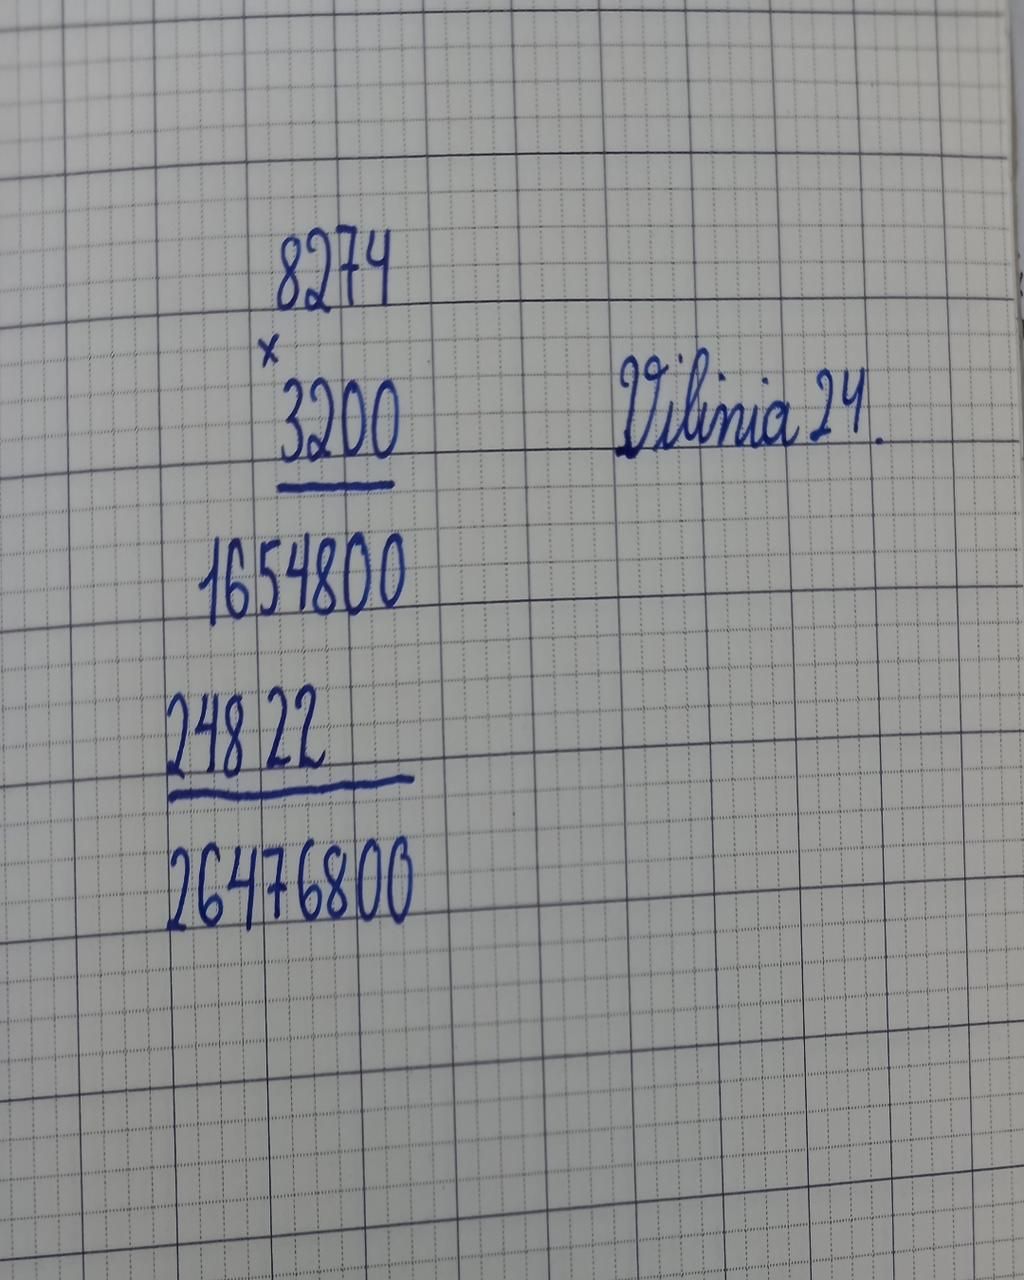 8274
x
3200
1654800
24822
26476800
Vilinia 24.